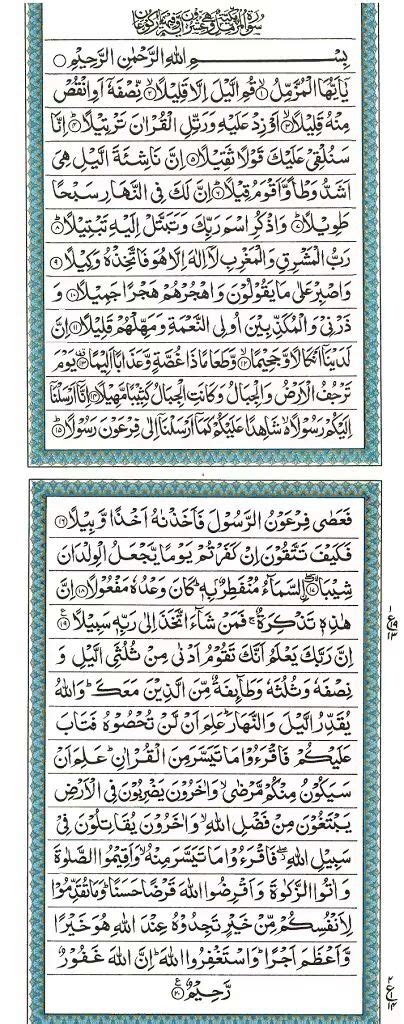 سُوْرَةُ الْمُزَّمِّلِ مَكِّيَّةٌ وَّهِيَ عِشْرُوْنَ اٰيَةً وَّفِيْهَا رُكُوْعَانِ
بِسْــــــمِ اللهِ الرَّحْمٰنِ الرَّحِيْمِ ۝
يٰۤاَيُّهَا الْمُزَّمِّلُ ۙ﴿۱﴾ قُمِ الَّيْلَ اِلَّا قَلِيْلًا ۙ﴿۲﴾ نِّصْفَهٗۤ اَوِ انْقُصْ
مِنْهُ قَلِيْلًا ۙ﴿۳﴾ اَوْ زِدْ عَلَيْهِ وَرَتِّلِ الْقُرْاٰنَ تَرْتِيْلًا ؕ﴿۴﴾ اِنَّا
سَنُلْقِيْ عَلَيْكَ قَوْلًا ثَقِيْلًا ﴿۵﴾ اِنَّ نَاشِئَةَ الَّيْلِ هِيَ
اَشَدُّ وَطْاً وَّاَقْوَمُ قِيْلًا ؕ﴿۶﴾ اِنَّ لَكَ فِي النَّهَارِ سَبْحًا
طَوِيْلًا ؕ﴿۷﴾ وَاذْكُرِ اسْمَ رَبِّكَ وَتَبَتَّلْ اِلَيْهِ تَبْتِيْلًا ؕ﴿۸﴾
رَبُّ الْمَشْرِقِ وَالْمَغْرِبِ لَاۤ اِلٰهَ اِلَّا هُوَ فَاتَّخِذْهُ وَكِيْلًا ﴿۹﴾
وَاصْبِرْ عَلٰى مَا يَقُوْلُوْنَ وَاهْجُرْهُمْ هَجْرًا جَمِيْلًا ﴿۱۰﴾ وَ
ذَرْنِيْ وَالْمُكَذِّبِيْنَ اُولِي النَّعْمَةِ وَمَهِّلْهُمْ قَلِيْلًا ﴿۱۱﴾ اِنَّ
لَدَيْنَاۤ اَنْكَالًا وَّجَحِيْمًا ۙ﴿۱۲﴾ وَّطَعَامًا ذَا غُصَّةٍ وَّعَذَابًا اَلِيْمًا ﴿۱۳﴾ يَوْمَ
تَرْجُفُ الْاَرْضُ وَالْجِبَالُ وَكَانَتِ الْجِبَالُ كَثِيْبًا مَّهِيْلًا ﴿۱۴﴾ اِنَّاۤ اَرْسَلْنَاۤ
اِلَيْكُمْ رَسُوْلًا ۙ شَاهِدًا عَلَيْكُمْ كَمَاۤ اَرْسَلْنَاۤ اِلٰى فِرْعَوْنَ رَسُوْلًا ؕ﴿۱۵﴾
فَعَصٰى فِرْعَوْنُ الرَّسُوْلَ فَاَخَذْنٰهُ اَخْذًا وَّبِيْلًا ﴿۱۶﴾
فَكَيْفَ تَتَّقُوْنَ اِنْ كَفَرْتُمْ يَوْمًا يَّجْعَلُ الْوِلْدَانَ
شِيْبًا ﴿۱۷﴾ السَّمَآءُ مُنْفَطِرٌۢ بِهٖ ؕ كَانَ وَعْدُهٗ مَفْعُوْلًا ﴿۱۸﴾ اِنَّ
هٰذِهٖ تَذْكِرَةٌ ۚ فَمَنْ شَآءَ اتَّخَذَ اِلٰى رَبِّهٖ سَبِيْلًا ﴿۱۹﴾
اِنَّ رَبَّكَ يَعْلَمُ اَنَّكَ تَقُوْمُ اَدْنٰى مِنْ ثُلُثَيِ الَّيْلِ وَ
نِصْفَهٗ وَثُلُثَهٗ وَطَآئِفَةٌ مِّنَ الَّذِيْنَ مَعَكَ ؕ وَاللهُ
يُقَدِّرُ الَّيْلَ وَالنَّهَارَ ؕ عَلِمَ اَنْ لَّنْ تُحْصُوْهُ فَتَابَ
عَلَيْكُمْ فَاقْرَءُوْا مَا تَيَسَّرَ مِنَ الْقُرْاٰنِ ؕ عَلِمَ اَنْ
سَيَكُوْنُ مِنْكُمْ مَّرْضٰى ۙ وَاٰخَرُوْنَ يَضْرِبُوْنَ فِي الْاَرْضِ
يَبْتَغُوْنَ مِنْ فَضْلِ اللهِ ۙ وَاٰخَرُوْنَ يُقَاتِلُوْنَ فِيْ
سَبِيْلِ اللهِ ۖ فَاقْرَءُوْا مَا تَيَسَّرَ مِنْهُ ۙ وَاَقِيْمُوا الصَّلٰوةَ
وَاٰتُوا الزَّكٰوةَ وَاَقْرِضُوا اللهَ قَرْضًا حَسَنًا ؕ وَمَا تُقَدِّمُوْا
لِاَنْفُسِكُمْ مِّنْ خَيْرٍ تَجِدُوْهُ عِنْدَ اللهِ هُوَ خَيْرًا
وَّاَعْظَمَ اَجْرًا ؕ وَاسْتَغْفِرُوا اللهَ ؕ اِنَّ اللهَ غَفُوْرٌ
رَّحِيْمٌ ﴿۲۰﴾